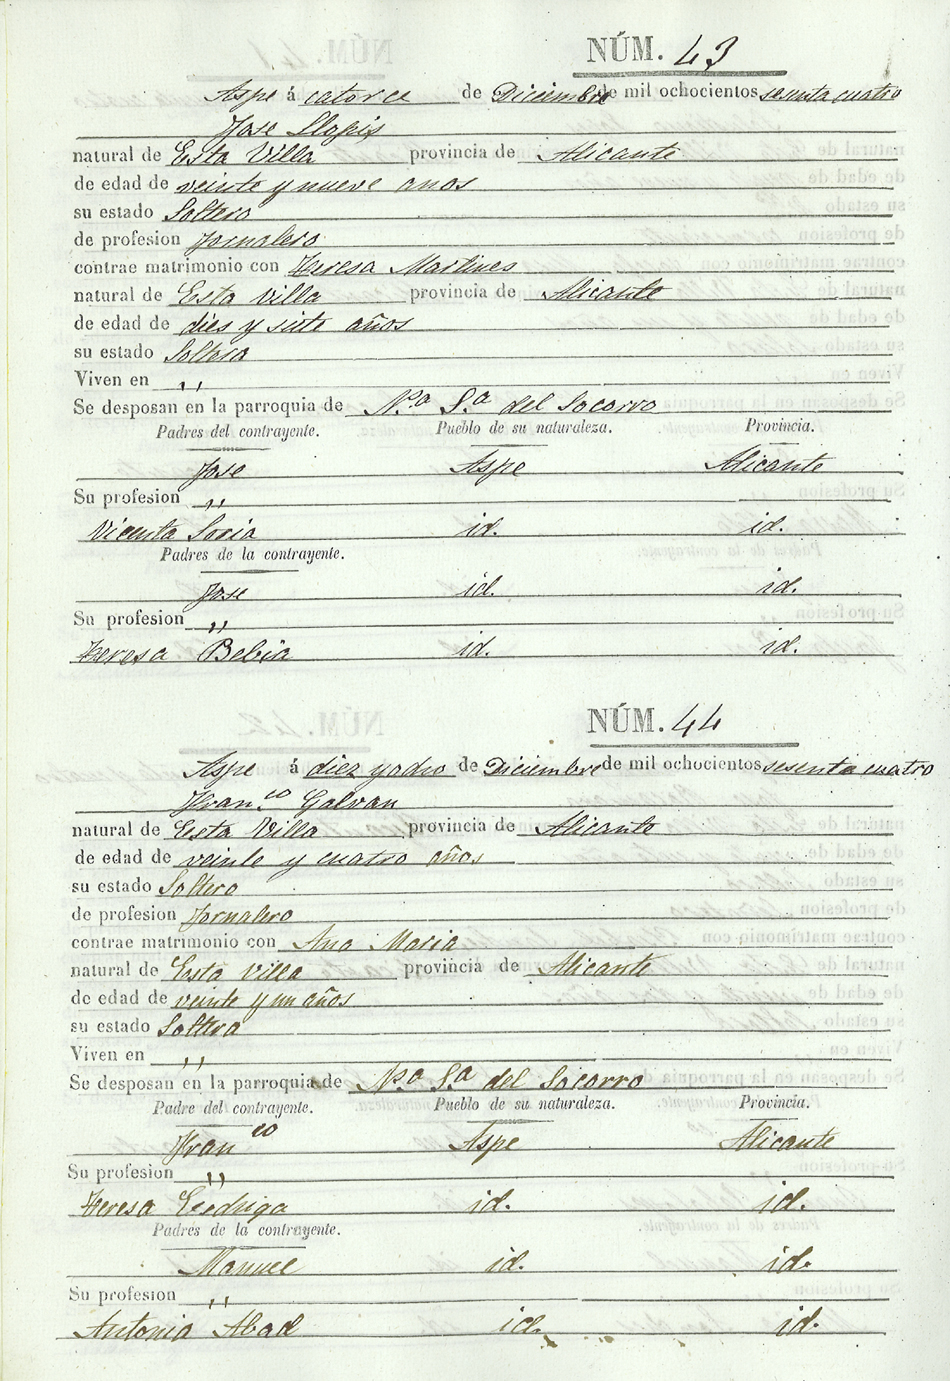 NÚM. 43
Aspe á catorce de Diciembre de mil ochocientos sesenta cuatro
Jose Llopis
natural de Esta Villa provincia de Alicante
de edad de veinte y nueve años
su estado Soltero
de profesion Jornalero
contrae matrimonio con Teresa Martines
natural de Esta villa provincia de Alicante
de edad de dies y siete años
su estado Soltera
Viven en ,,
Se desposan en la parroquia de N.ª S.ª del Socorro
Padres del contrayente. Pueblo de su naturaleza. Provincia.
Jose Aspe Alicante
Su profesion ,,
Vicenta Soria id. id.
Padres de la contrayente.
Jose id. id.
Su profesion ,,
Teresa Bebia id. id.
NÚM. 44
Aspe á diez y ocho de Diciembre de mil ochocientos sesenta cuatro
Fran.co Galvan
natural de Esta Villa provincia de Alicante
de edad de veinte y cuatro años
su estado Soltero
de profesion Jornalero
contrae matrimonio con Ana Maria
natural de Esta villa provincia de Alicante
de edad de veinte y un años
su estado Soltera
Viven en ,,
Se desposan en la parroquia de N.ª S.ª del Socorro
Padre del contrayente. Pueblo de su naturaleza. Provincia.
Fran co Aspe Alicante
Su profesion ,,
Teresa id. id.
Padres de la contrayente.
Manuel id. id.
Su profesion ,,
Antonia Abad id. id.